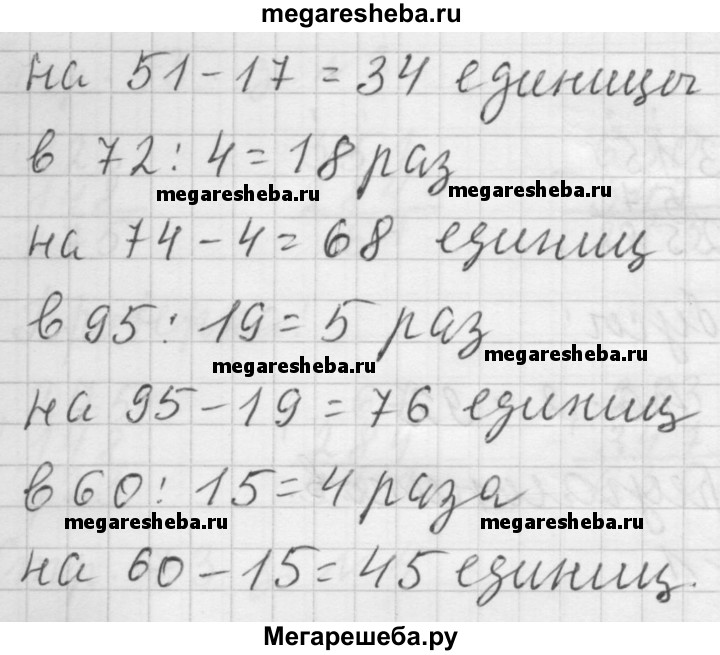 megaresheba.ru
на 51 - 17 = 34 единицы
в 72 : 4 = 18 раз
megaresheba.ru megaresheba.ru
на 74 - 4 = 68 единиц
в 95 : 19 = 5 раз
megaresheba.ru megaresheba.ru
на 95 - 19 = 76 единиц
в 60 : 15 = 4 раза
megaresheba.ru megaresheba.ru
на 60 - 15 = 45 единиц.
Мегарешеба.ру